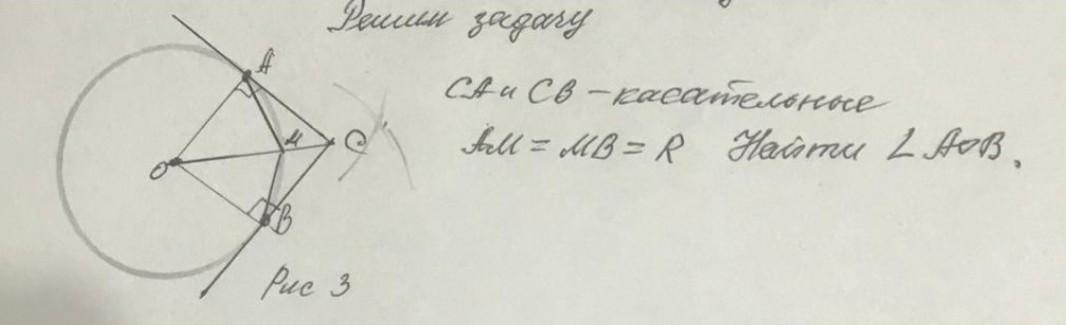 Решим задачу
CA и CB – касательные
AM = MB = R Найти ∠ AOB.
A
M
C
O
B
Рис 3